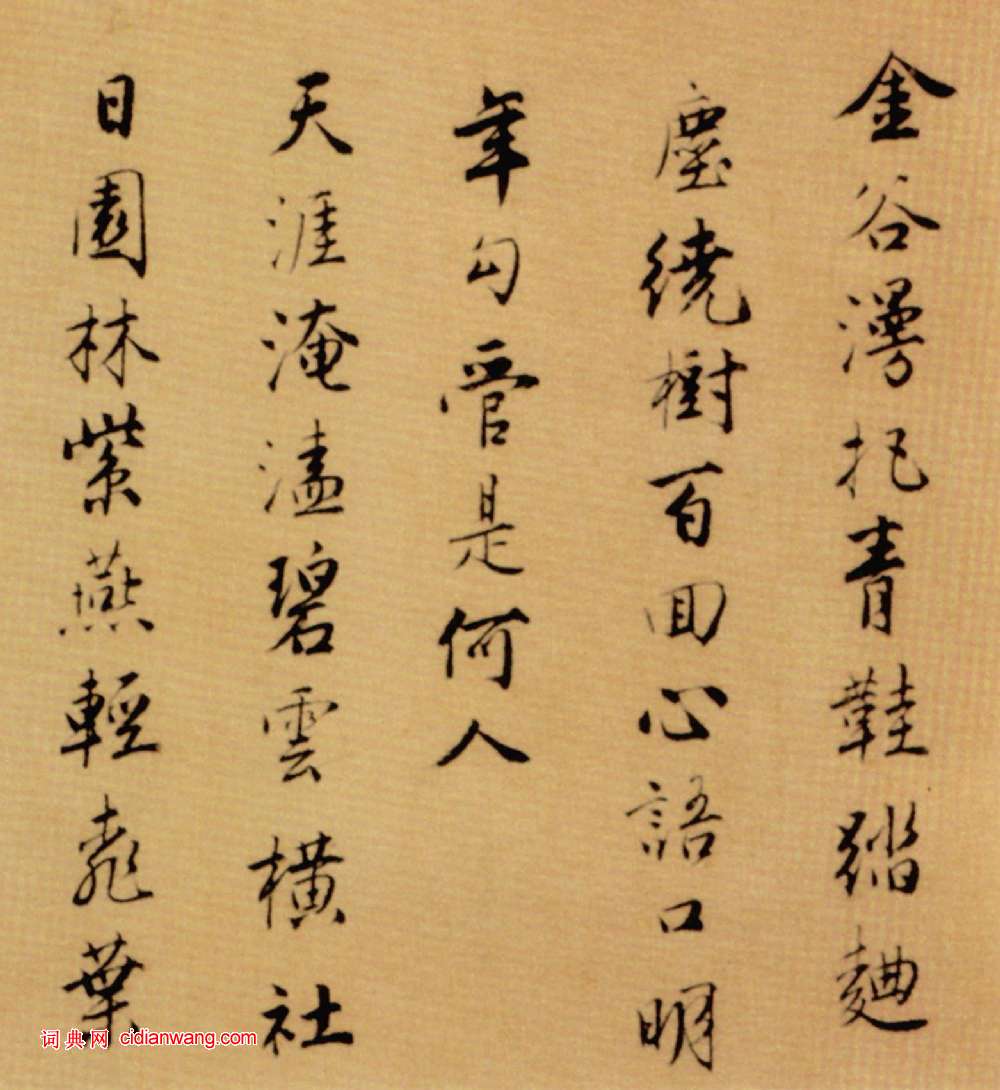 金谷漫把青鞋踏麯
塵繞樹百回心語口明
年勾管是何人
天涯淹溘碧雲橫社
日園林紫燕輕桃葉
词典网 cidianwang.com